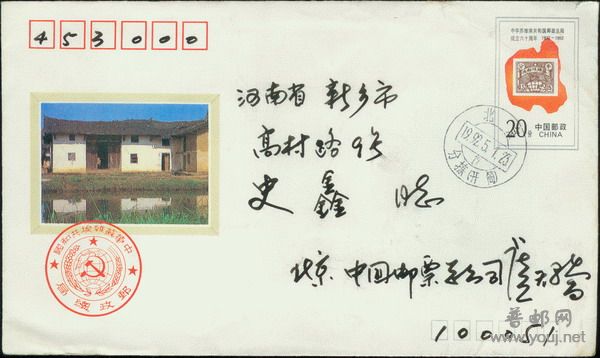 453000
中华苏维埃共和国邮政总局
成立六十周年 1932-1992
20分
中国邮政
CHINA
河南省 新乡市
高村路9号
史鑫 同志
北京
1992.5.1.23
中华苏维埃共和国
邮政总局
北京 中国邮票总公司
100051
普邮网
www.youj.net